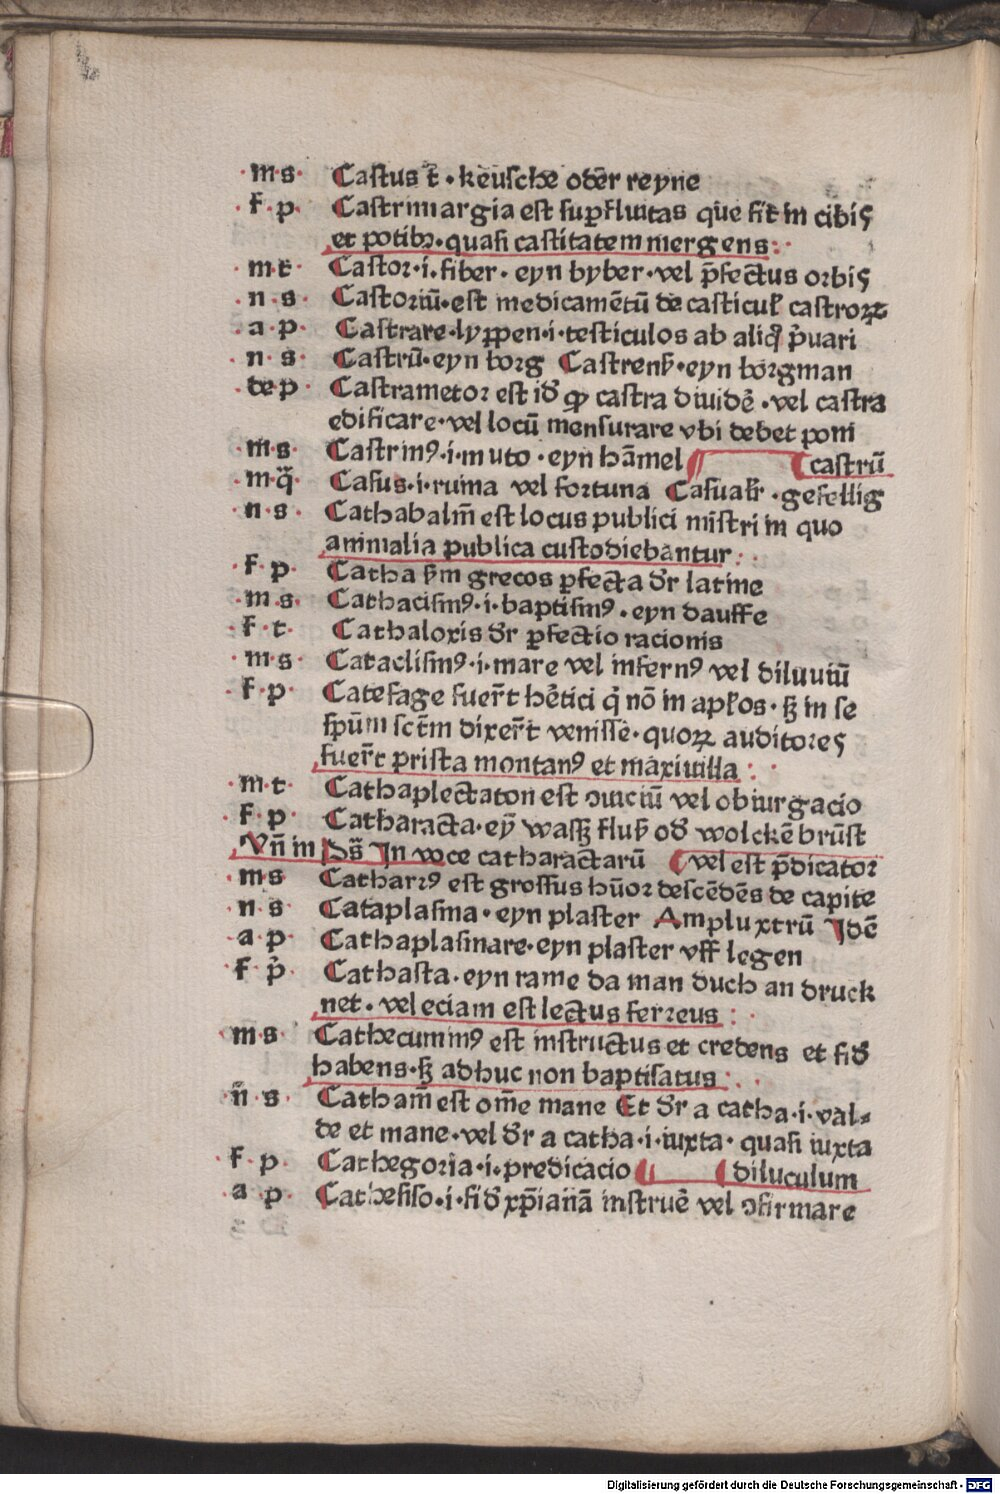 m s Castus t̄ · keusche odēr reyne
f p Castrimargia est sup̱fluitas que fit in cibis
et potibꝫ · quasi castitatem mergens
m t Castor · i · fiber · eyn byber · vel p̄fectus orbis
n s Castoriū · est medicamētū de casticul̕ castroꝝ
a p Castrare · lyppen · i · testiculos ab aliq̊ p̓uari
n s Castrū · eyn borg Castrens̕ · eyn borgman
de p Castrametor est id̕ ꝙ castra diuidē · vel castra
edificare · vel locū mensurare vbi debet poni
m s Castrinꝰ · i · muto · eyn hāmel castrū
m q̄ Casus · i · ruina vel fortuna Casual̕r · gefellig
n s Cathabalm̄ est locus publici mīstri in quo
animalia publica custodiebantur
f p Catha s̕m grecos ꝑfecta d̕r latine
m s Cathacismꝰ · i · baptismꝰ · eyn dauffe
f t Cathaloxis d̕r ꝑfectio racionis
m s Cataclismꝰ · i · mare vel infernꝰ vel diluuiū
f p Catefage fuer̄t hētici q̓ nō in apl̕os · sꝫ in se
sp̄um sc̄tm dixer̄t venisse · quoꝝ auditores
fuer̄t prista montanꝰ et maxiuilla
m t Cathaplectaton est ꝯuiciū vel obiurgacio
f p Catharacta · eȳ wassꝫ flus̕ od̕ wolckē brūst
Vn̄ in Ps̄ In voce catharactarū vel est p̄dicator
m s Catharrꝰ est grossus hūor descēdēs de capite
n s Cataplasma · eyn plaster Ampluxtrū Idē
a p Cathaplasmare · eyn plaster vff legen
f p̓ Cathasta · eyn rame da man duch an druck
net · vel eciam est lectus ferreus
m s Cathecuminꝰ est instructus et credens et fid̕
habens · sꝫ adhuc non baptisatus
n̄ s Catham̄ est om̄e mane Et d̕r a catha · i · val⸗
de et mane · vel d̕r a catha · i · iuxta · quasi iuxta
f p Cathegoria · i · predicacio diluculum
a p Cathesiso · i · fid̕ xp̄ianā instruē vel ꝯfirmare
Digitalisierung gefördert durch die Deutsche Forschungsgemeinschaft - DFG